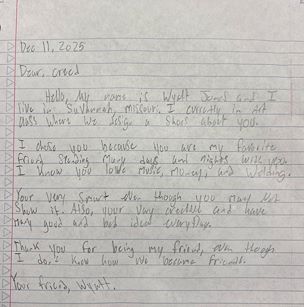 Dec 11, 2025
Dear, creed
Hello, My name is Wyatt Jones and I
live in Savannah, Missouri. I currently in Art
class where we design a shoes about you.
I chose you because you are my favorite
friend Spending Many days and nights with you
I know you love Music, Money, and Welding.
Your very Smart even though you may not
Show it. Also, your very creative and have
many good and bad ideas everyday.
Thank you for being my friend, even though
I don't know how we became friends.
Your friend, Wyatt.